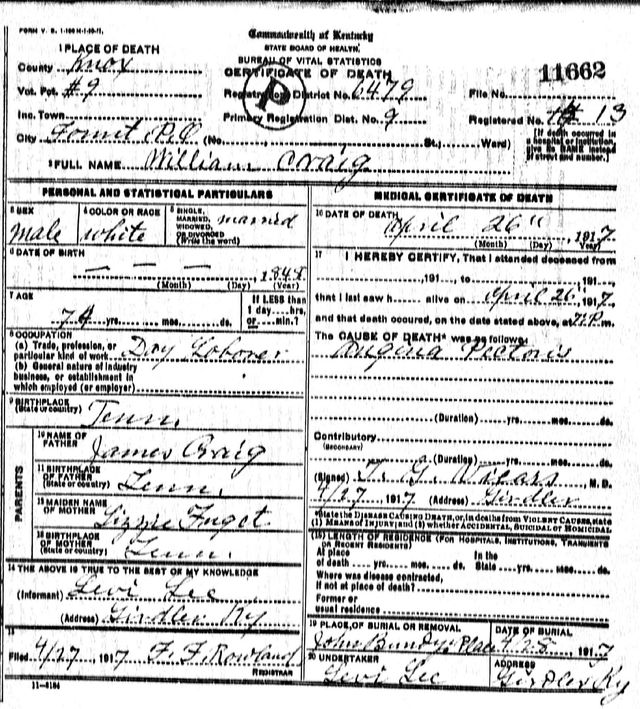 FORM V. S. 1-100 M-1-10-11.
Commonwealth of Kentucky
STATE BOARD OF HEALTH.
BUREAU OF VITAL STATISTICS
CERTIFICATE OF DEATH
1 PLACE OF DEATH
County Knox
Vot. Pct. #9
Inc. Town
City P.O. (No. St.; Ward)
Registration District No. 6479
Primary Registration Dist. No. 9
P
File No. 11662
Registered No. 13
[If death occurred in a hospital or institution, give its NAME instead of street and number.]
2 FULL NAME William Craig
PERSONAL AND STATISTICAL PARTICULARS
3 SEX
male
4 COLOR OR RACE
white
5 SINGLE, MARRIED, WIDOWED, OR DIVORCED (Write the word)
married
6 DATE OF BIRTH
— — —, 1848
(Month) (Day) (Year)
7 AGE
yrs. mos. ds.
If LESS than 1 day hrs. or min.?
8 OCCUPATION
(a) Trade, profession, or
particular kind of work Day Laborer
(b) General nature of industry
business, or establishment in
which employed (or employer)
9 BIRTHPLACE
(State or country) Tenn.
PARENTS
10 NAME OF FATHER James Craig
11 BIRTHPLACE OF FATHER (State or country) Tenn.
12 MAIDEN NAME OF MOTHER Lizzie Fugot
13 BIRTHPLACE OF MOTHER (State or country) Tenn.
14 THE ABOVE IS TRUE TO THE BEST OF MY KNOWLEDGE
(Informant) Levi Lee
(Address) Girdler Ky
15
Filed 4/27, 1917 F. F. Rowland
REGISTRAR
11-3184
MEDICAL CERTIFICATE OF DEATH
16 DATE OF DEATH
April 26", 1917
(Month) (Day) (Year)
17 I HEREBY CERTIFY, That I attended deceased from
, 191 , to , 191 ,
that I last saw h alive on April 26, 1917
and that death occured, on the date stated above, at P.m.
The CAUSE OF DEATH* was as follows:
Angina Pectoris
(Duration) yrs. mos. ds.
Contributory
(SECONDARY)
(Duration) yrs. mos. ds.
(Signed) G. Vicars, M.D.
4/27, 1917 (Address) Girdler
*State the DISEASE CAUSING DEATH, or, in deaths from VIOLENT CAUSES, state
(1) MEANS OF INJURY; and (2) whether ACCIDENTAL, SUICIDAL or HOMICIDAL
(18) LENGTH OF RESIDENCE (FOR HOSPITALS, INSTITUTIONS, TRANSIENTS
OR RECENT RESIDENTS)
At place of death yrs. mos. ds. In the State yrs. mos. ds.
Where was disease contracted,
if not at place of death?
Former or
usual residence
19 PLACE OF BURIAL OR REMOVAL
John Bundy Place
DATE OF BURIAL
4-28, 1917
20 UNDERTAKER
Levi Lee
ADDRESS
Girdler Ky